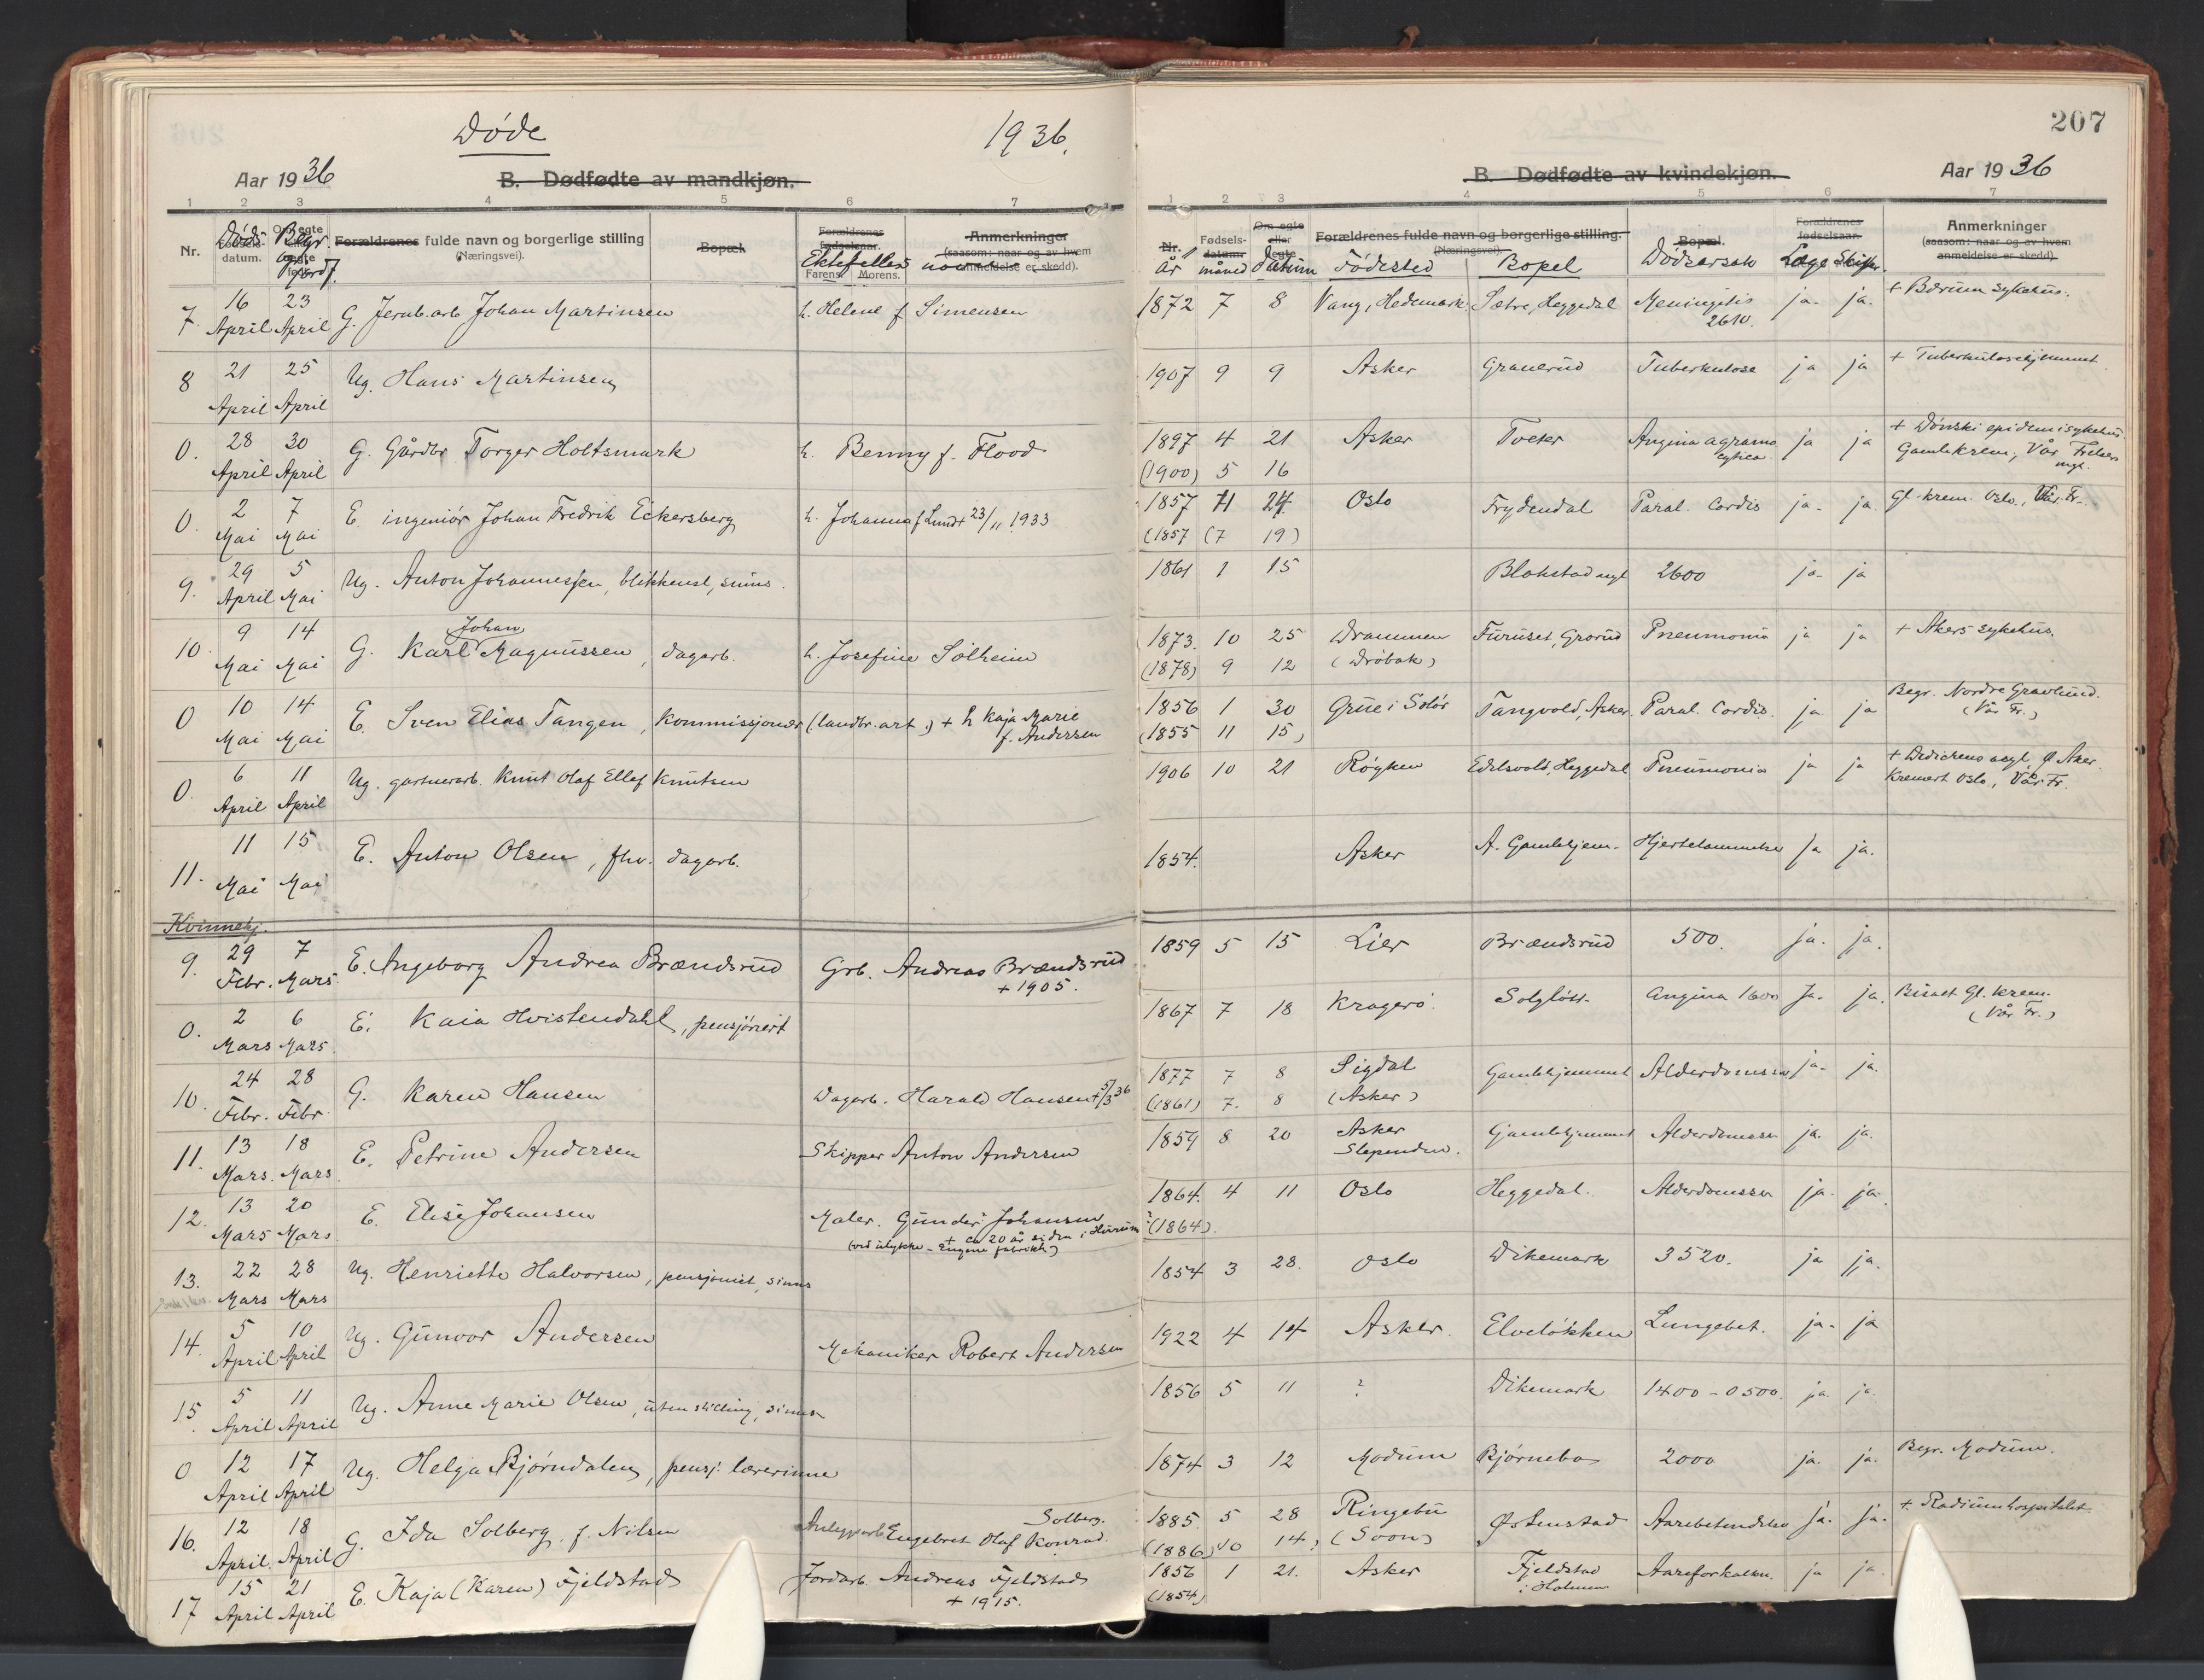 Døde 1936.
Aar 1936 B. Dødfødte av mandkjøn.
1 2 3 4 5 6 7
Nr. Døds datum. Begr. Forældrenes fulde navn og borgerlige stilling (Næringsvei). Bopæl. Forældrenes fødselsaar. Farens. Morens. Ektefelles navn Anmerkninger (saasom: naar og av hvem anmeldelse er skedd).
7. 16 April 23 April G. Jernb.arb. Johan Martinsen h. Helene f. Simensen
8 21 April 25 April Ug. Hans Martinsen
0. 28 April 30 April G. Gårdbr Torger Holtsmark h. Benny f. Flood
0. 2 Mai 7 Mai E. ingeniör Johan Fredrik Eckersberg h. Johanna f Lund + 23/11 1933
9. 29 April 5 Mai Ug. Anton Johannessen, blikkensl, sinns.
10. 9 Mai 14 Mai G. Karl Johan Magnussen, dagarb. h. Josefine Solheim
0 10 Mai 14 Mai E. Sven Elias Tangen, kommissjonær (landbr. art.) + h Kaja Marie f. Andersen
0. 6 April 11 April Ug. gartnerarb. Knut Olaf Ellef Knutsen
11. 11 Mai 15 Mai E. Anton Olsen, fhv. dagarb.
Kvinnekj.
9. 29 Febr. 7 Mars E. Ingeborg Andrea Brændsrud Grb. Andreas Brændsrud + 1905.
0. 2 Mars 6 Mars. E. Kaia Hvistendahl, pensjonert
10. 24 Febr. 28 Febr. G. Karen Hansen Dagarb. Harald Hansen + 5/3 36
11. 13 Mars. 18 Mars. E. Petrine Andersen Skipper Anton Andersen
12. 13 Mars 20 Mars E. Elise Johansen Maler. Gunder Johansen + ca 20 år siden i Hurum (ved ulykke - Engene fabrikk)
13. 22 Mars 28 Mars Ug. Henriette Halvorsen, pensjonist, sinns
14. 5 April 10 April Ug. Gunvor Andersen Mekaniker Robert Andersen
15. 5 April 11 April Ug. Anne Marie Olsen, uten stilling, sinns
0 12 April 17 April Ug. Helga Bjørndalen, pensj. lærerinne
16. 12 April. 18 April G. Ida Solberg, f. Nilsen Anleggsarb Engebret Olaf Konrad Solberg.
17 15 April 21 April E. Kaja (Karen) Fjeldstad Jordarb. Andreas Fjeldstad + 1915.
207
B. Dødfødte av kvindekjøn. Aar 1936
1 2 3 4 5 6 7
Nr. År Fødsels-datum måned Om egte eller uegte Datum Forældrenes fulde navn og borgerlige stilling. (Næringsvei) Fødested Bopel Bopæl. Dødsårsak Forældrenes fødselsaar. Læge Skifter. Anmerkninger (saasom: naar og av hvem anmeldelse er skedd).
1872 7 8 Vang, Hedemark Sætre, Heggedal Meningitis 2610. ja. ja. + Bærum sykehus.
1907 9 9 Asker Grauerud Tuberkulose ja ja + Tuberkulosehjemmet
1897 4 21 Asker Tveter Angina agranocytica ja ja + Dønski epidemisykehus
(1900) 5 16 Gamle krem, Vår Frelsers
1857 11 24 Oslo Frydendal Paral. Cordis ja. ja Gl. krem. Oslo, Vår Fr.
(1857 (7 19)
1861 1 15 Blakstad asyl 2600 ja. ja
1873. 10 25 Drammen Furuset, Grorud Pneumonia ja ja + Akers sykehus.
(1878) 9 12 (Drøbak)
1856 1 30 Grue i Solør Tangvold, Asker. Paral. Cordis. ja ja Begr. Nordre Gravlund.
(1855 11 15) (Vår Fr.)
1906 10 21 Røyken Edelsvold, Heggedal Pneumonia ja ja + Dedichens asyl, Ø. Aker.
Kremert Oslo, Vår Fr.
1854. Asker A. Gamlehjem. Hjertelammelse ja ja.
1859 5 15 Lier Brændsrud 500. ja. ja.
1867 7 18 Kragerö. Solgløtt. Angina 1600 Ja. ja. Bisatt Gl. krem.
(Vår Fr.)
1877 7 8 Sigdal Gamlehjemmet Alderdomssv ja. ja.
(1861) 7. 8 (Asker)
1859 8 20 Asker Slependen. Gamlehjemmet Alderdomssv ja. ja.
1864. 4 11 Oslo Heggedal. Alderdomssv ja. ja.
(1864)
1854 3 28. Oslo Dikemark 3520. ja ja.
1922 4 14 Asker. Elveløkken Lungebet. ja. ja
1856 5 11 ? Dikemark 1400 - 0500. ja. ja.
1874 3 12 Modum Bjørnebo 2000 ja. ja. Begr. Modum.
1885. 5 28 Ringebu Østenstad Aarebetendelse ja. ja. + Radiumhospitalet
(1886) 10 14) (Soon)
1856 1 21. Asker Fjeldstad i Holmen Aareforkalkn. ja ja.
(1854)